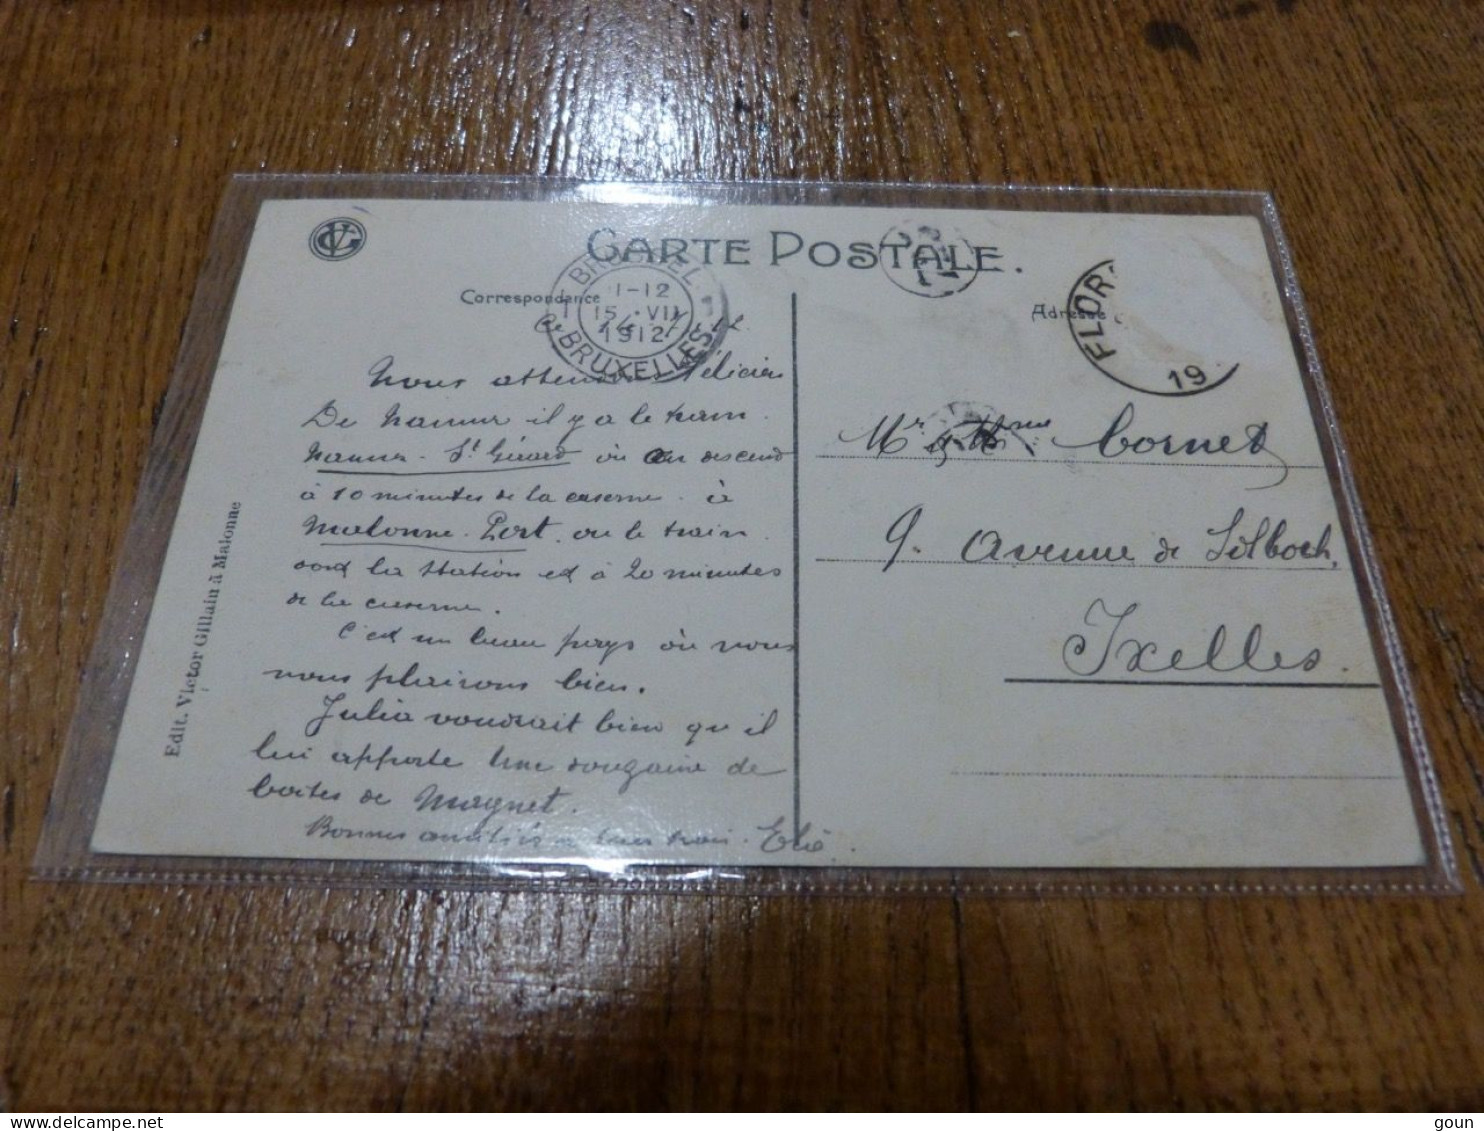 CARTE POSTALE.
Correspondance
Adresse
BRUXELLES
1-12
15 VII
1912
BRUXELLES
FLOR
19
Nous attendons Félicien
De Namur il y a le train
Namur - St Gérard où on descend
à 10 minutes de la caserne à
Malonne-Port, ou le train
dont la station est à 20 minutes
de la caserne.
C'est un beau pays où nous
nous plairons bien.
Julia voudrait bien qu'il
lui apporte une douzaine de
boites de Magnet.
Bonnes amitiés trois. Elie.
Mr Mme Cornet
9. Avenue de Solbosch,
Ixelles.
Edit. Victor Gillain à Malonne
goun